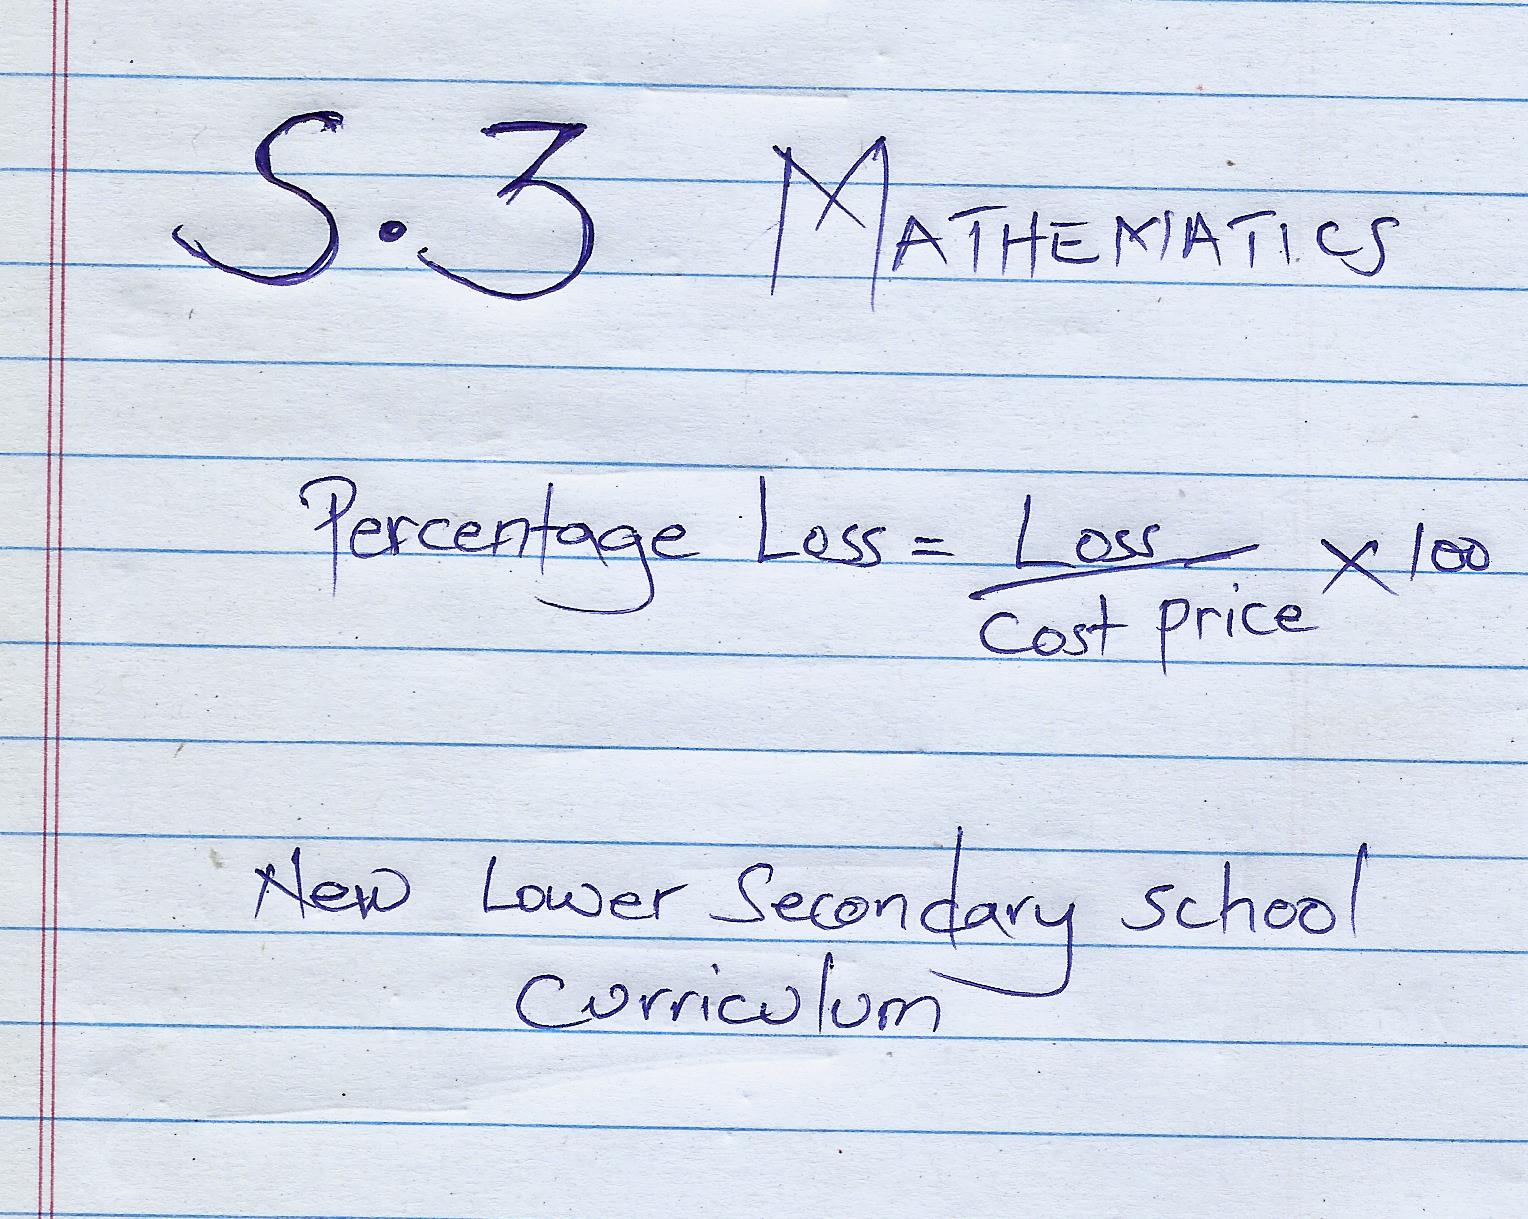 S.3 MATHEMATICS
Percentage Loss = Loss / Cost price × 100
New Lower Secondary school
Curriculum